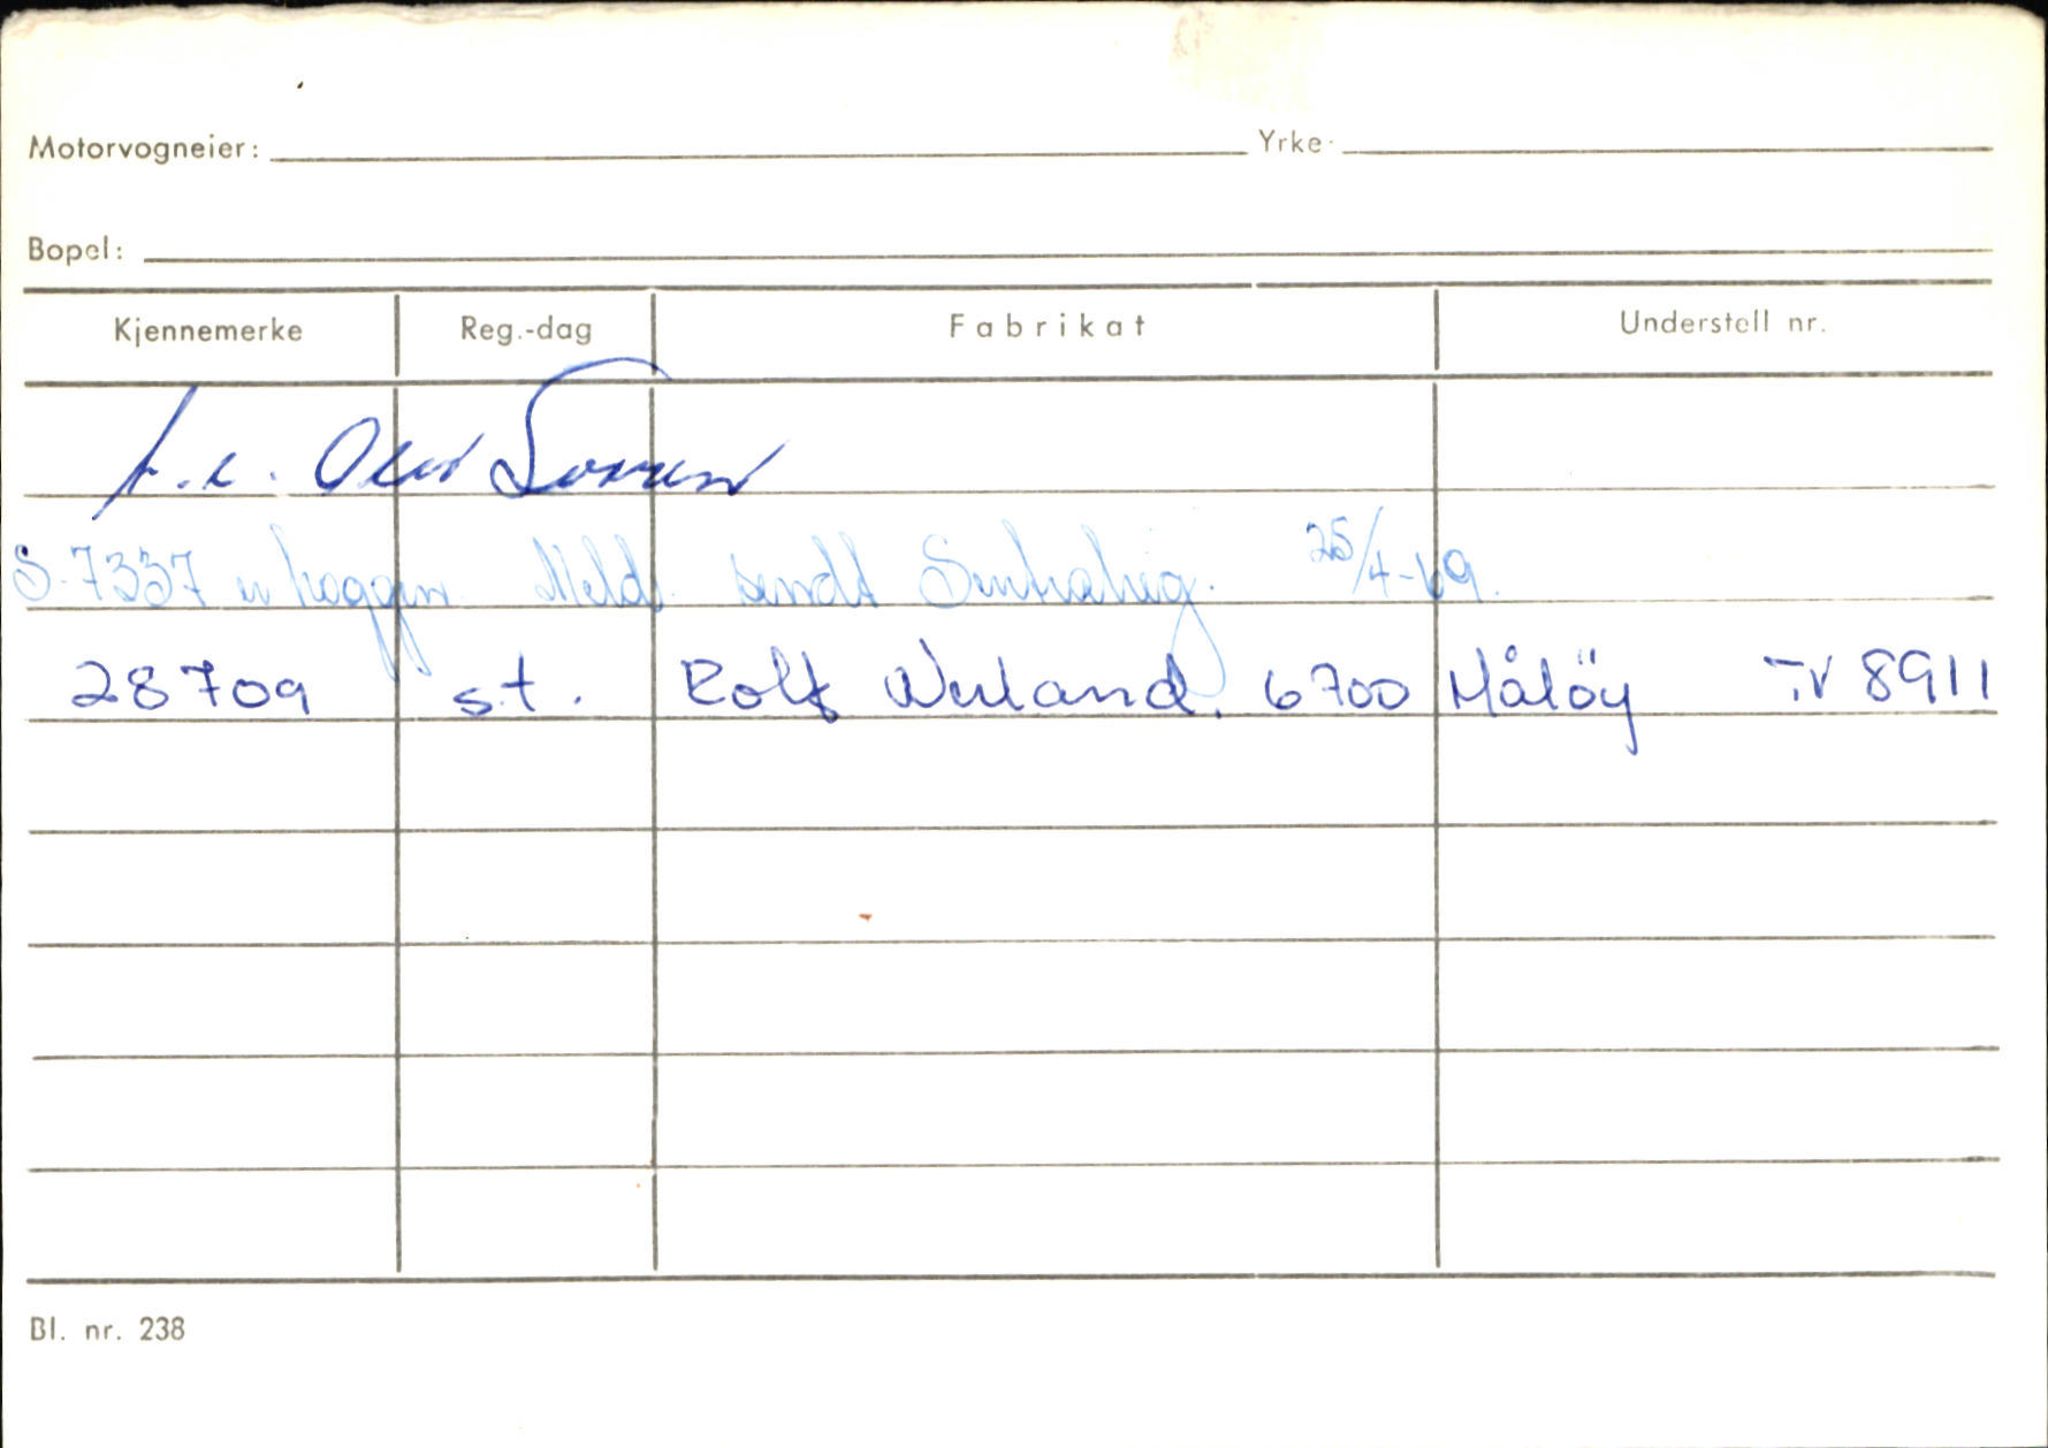 Motorvogneier: Yrke:
Bopel:
Kjennemerke Reg.-dag Fabrikat Understell nr.
Olav
S-7337 u hoggen. Meld. sendt 25/4-69.
28709 st. Rolf 6700 Måløy TV 8911
Bl. nr. 238